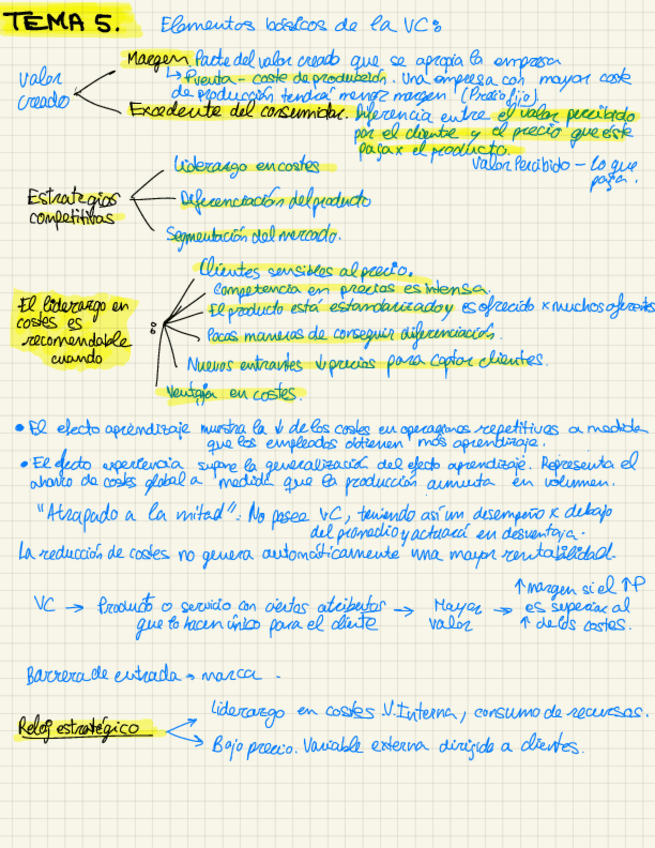 TEMA 5. Elementos básicos de la VC:
Valor creado
Margen Parte del valor creado que se apropia la empresa
↳ Pventa - coste de producción. Una empresa con mayor coste
de producción tendrá menor margen (Precio fijo)
Excedente del consumidor. Diferencia entre el valor percibido
por el cliente y el precio que éste
paga x el producto.
Valor Percibido - lo que
paga.
Estrategias
competitivas
Liderazgo en costes
Diferenciación del producto
Segmentación del mercado.
El liderazgo en
costes es
recomendable
cuando
:
Clientes sensibles al precio.
Competencia en precios es intensa.
El producto está estandarizado y es ofrecido x muchos oferentes
Pocas maneras de conseguir diferenciación.
Nuevos entrantes ↓ precios para captar clientes.
Ventaja en costes.
• El efecto aprendizaje muestra la ↓ de los costes en operaciones repetitivas a medida
que los empleados obtienen más aprendizaje.
• El efecto experiencia supone la generalización del efecto aprendizaje. Representa el
ahorro de costes global a medida que la producción aumenta en volumen.
"Atrapado a la mitad": No posee VC, teniendo así un desempeño x debajo
del promedio y actuará en desventaja.
La reducción de costes no genera automáticamente una mayor rentabilidad.
VC → Producto o servicio con ciertos atributos
que lo hacen único para el cliente
→ Mayor
valor
→ ↑ margen si el ↑P
es superior al
↑ de los costes.
Barrera de entrada → marca.
Reloj estratégico
Liderazgo en costes V.Interna, consumo de recursos.
Bajo precio. Variable externa dirigida a clientes.